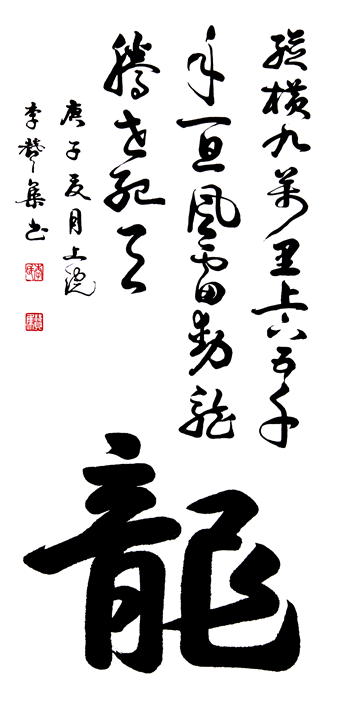 縱橫九萬里上下五千
年一旦風雷動龍
騰世紀天
庚子夏月上浣
李集书
龍